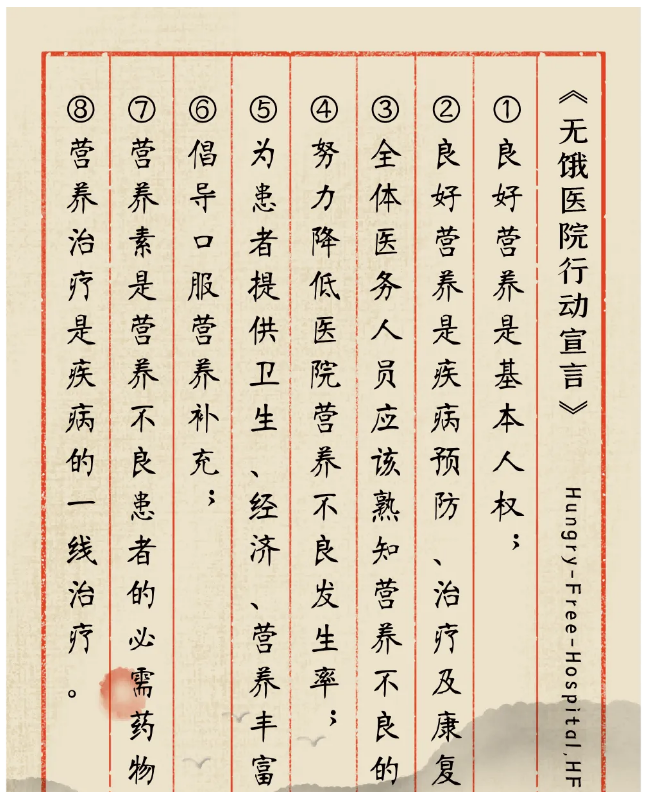 《无饿医院行动宣言》 Hungry-Free-Hospital,HF
①良好营养是基本人权；
②良好营养是疾病预防、治疗及康复
③全体医务人员应该熟知营养不良的
④努力降低医院营养不良发生率；
⑤为患者提供卫生、经济、营养丰富
⑥倡导口服营养补充；
⑦营养素是营养不良患者的必需药物
⑧营养治疗是疾病的一线治疗。